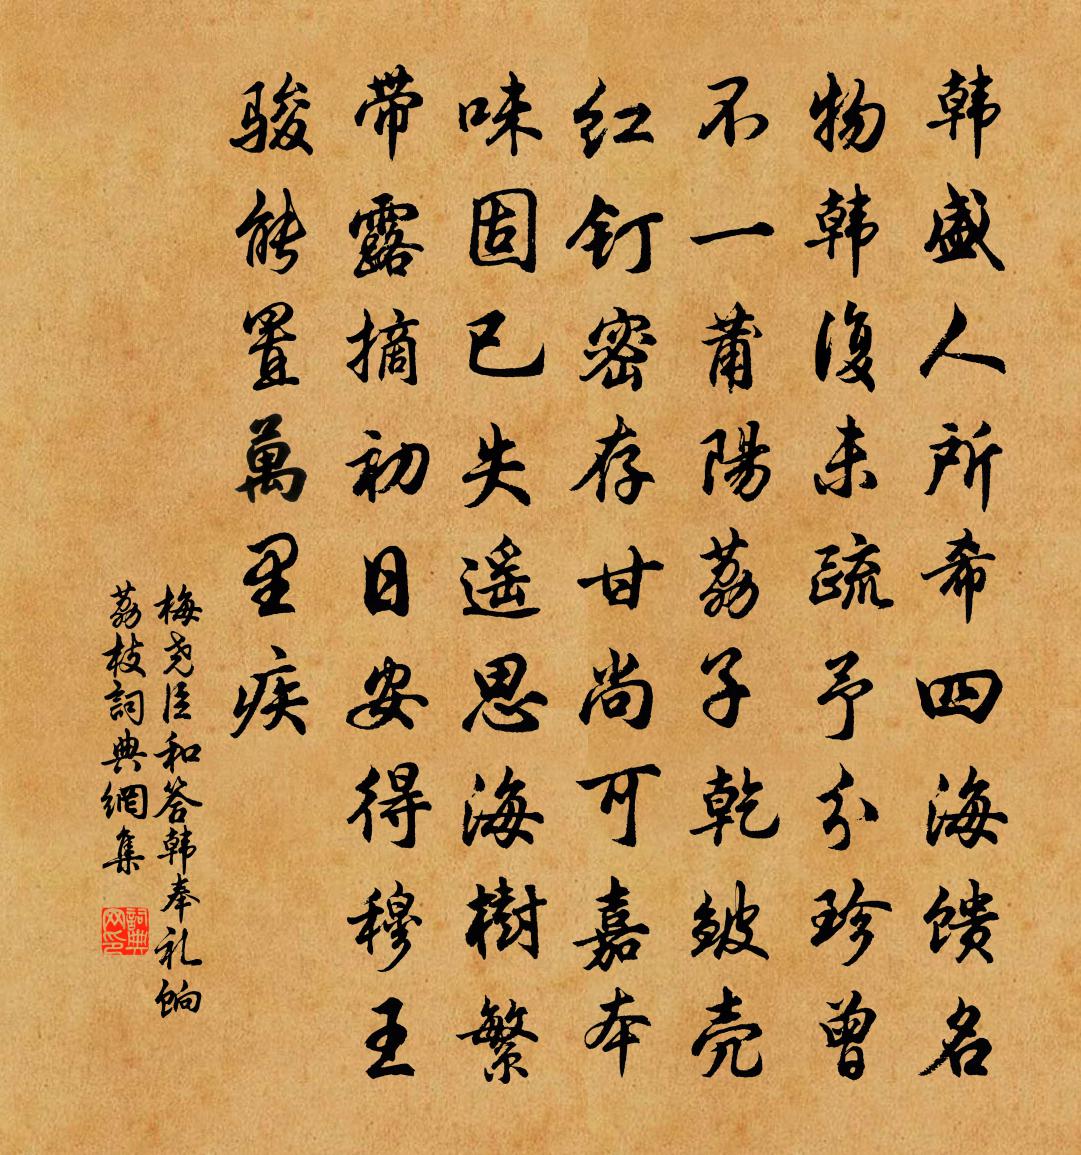 韩盛人所希四海馈名
物韩復未疏予分珍曾
不一莆陽荔子乾皴壳
红钉密存甘尚可嘉本
味固已失遥思海樹繁
带露摘初日安得穆王
骏能置萬里疾
梅尧臣和答韩奉礼饷
荔枝詞典網集
詞典网印